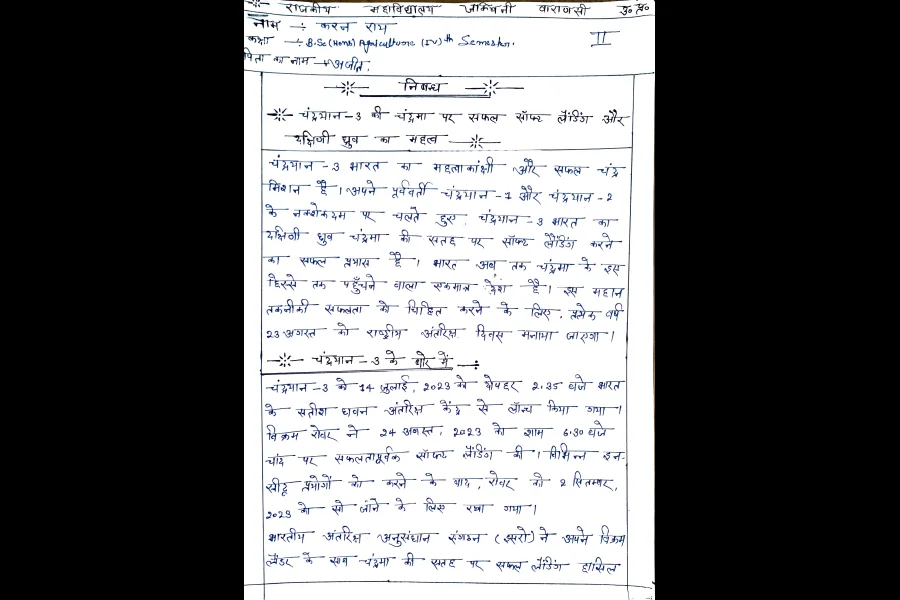 राजकीय महाविद्यालय जक्खिनी वाराणसी उ० प्र०
नाम :- करन राय
कक्षा :- B.Sc (Hons) Agriculture (IV)th Semester.
II
पिता का नाम → अजीत.
निबन्ध
चंद्रयान -3 की चंद्रमा पर सफल सॉफ्ट लैंडिंग और
दक्षिणी ध्रुव का महत्व
चंद्रयान -3 भारत का महत्वाकांक्षी और सफल चंद्र
मिशन है। अपने पूर्ववर्ती चंद्रयान -1 और चंद्रयान -2
के नक्शेकदम पर चलते हुए, चंद्रयान -3 भारत का
दक्षिणी ध्रुव चंद्रमा की सतह पर सॉफ्ट लैंडिंग करने
का सफल प्रयास है। भारत अब तक चंद्रमा के इस
हिस्से तक पहुँचने वाला एकमात्र देश है। इस महान
तकनीकी सफलता को चिह्नित करने के लिए, प्रत्येक वर्ष
23 अगस्त को राष्ट्रीय अंतरिक्ष दिवस मनाया जाएगा।
चंद्रयान -3 के बारे में :-
चंद्रयान -3 को 14 जुलाई, 2023 को दोपहर 2:35 बजे भारत
के सतीश धवन अंतरिक्ष केंद्र से लॉन्च किया गया।
विक्रम रोवर ने 24 अगस्त, 2023 को शाम 6:30 बजे
चांद पर सफलतापूर्वक सॉफ्ट लैंडिंग की। विभिन्न इन-
सीटू प्रयोगों को करने के बाद, रोवर को 2 सितम्बर,
2023 को सो जाने के लिए रखा गया।
भारतीय अंतरिक्ष अनुसंधान संगठन (इसरो) ने अपने विक्रम
लैंडर के साथ चंद्रमा की सतह पर सफल लैंडिंग हासिल